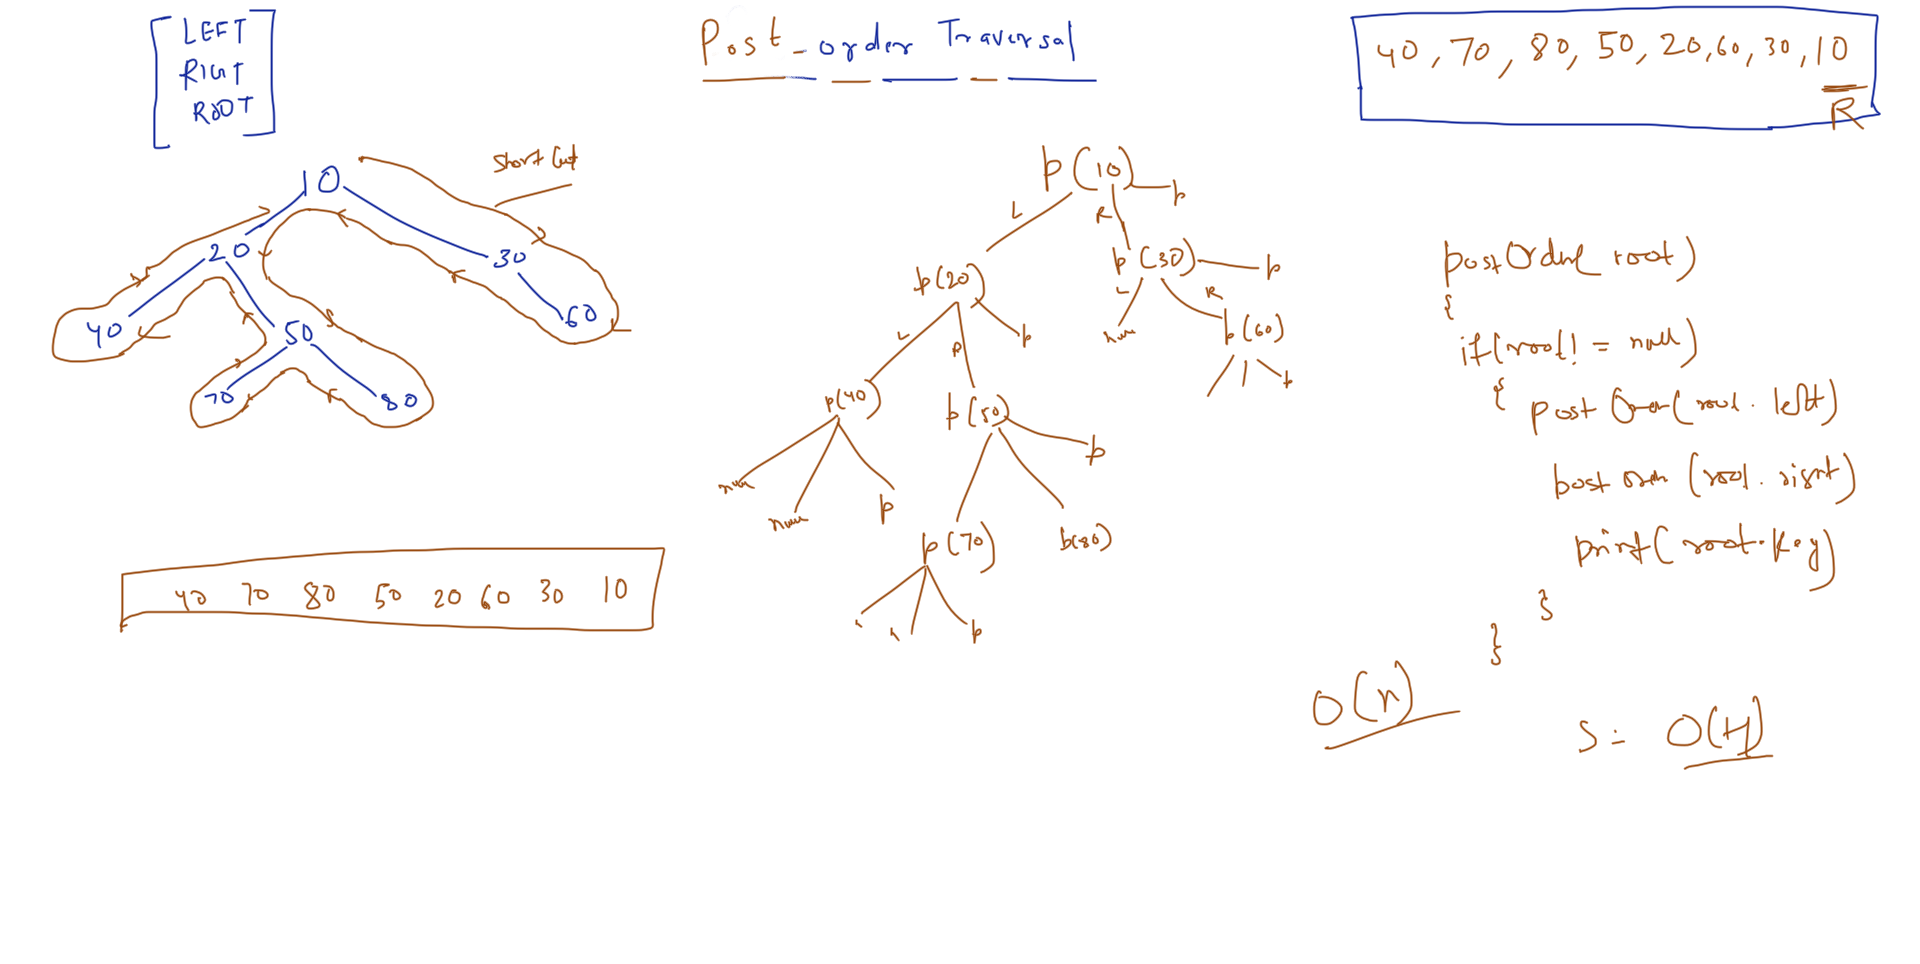 LEFT
RIGHT
ROOT
Post-order Traversal
40, 70, 80, 50, 20, 60, 30, 10
R
Short Cut
10
20
30
40
50
60
70
80
40 70 80 50 20 60 30 10
p(10)
L
R
p
p(20)
p(30)
p
L
R
p
L
R
null
p(60)
p
p(40)
p(50)
p
null
null
p
p(70)
p(80)
p
postOrder( root)
{
if(root != null)
{ post Order( root. left)
post order (root. right)
print( root.key)
}
}
O(n)
S = O(H)